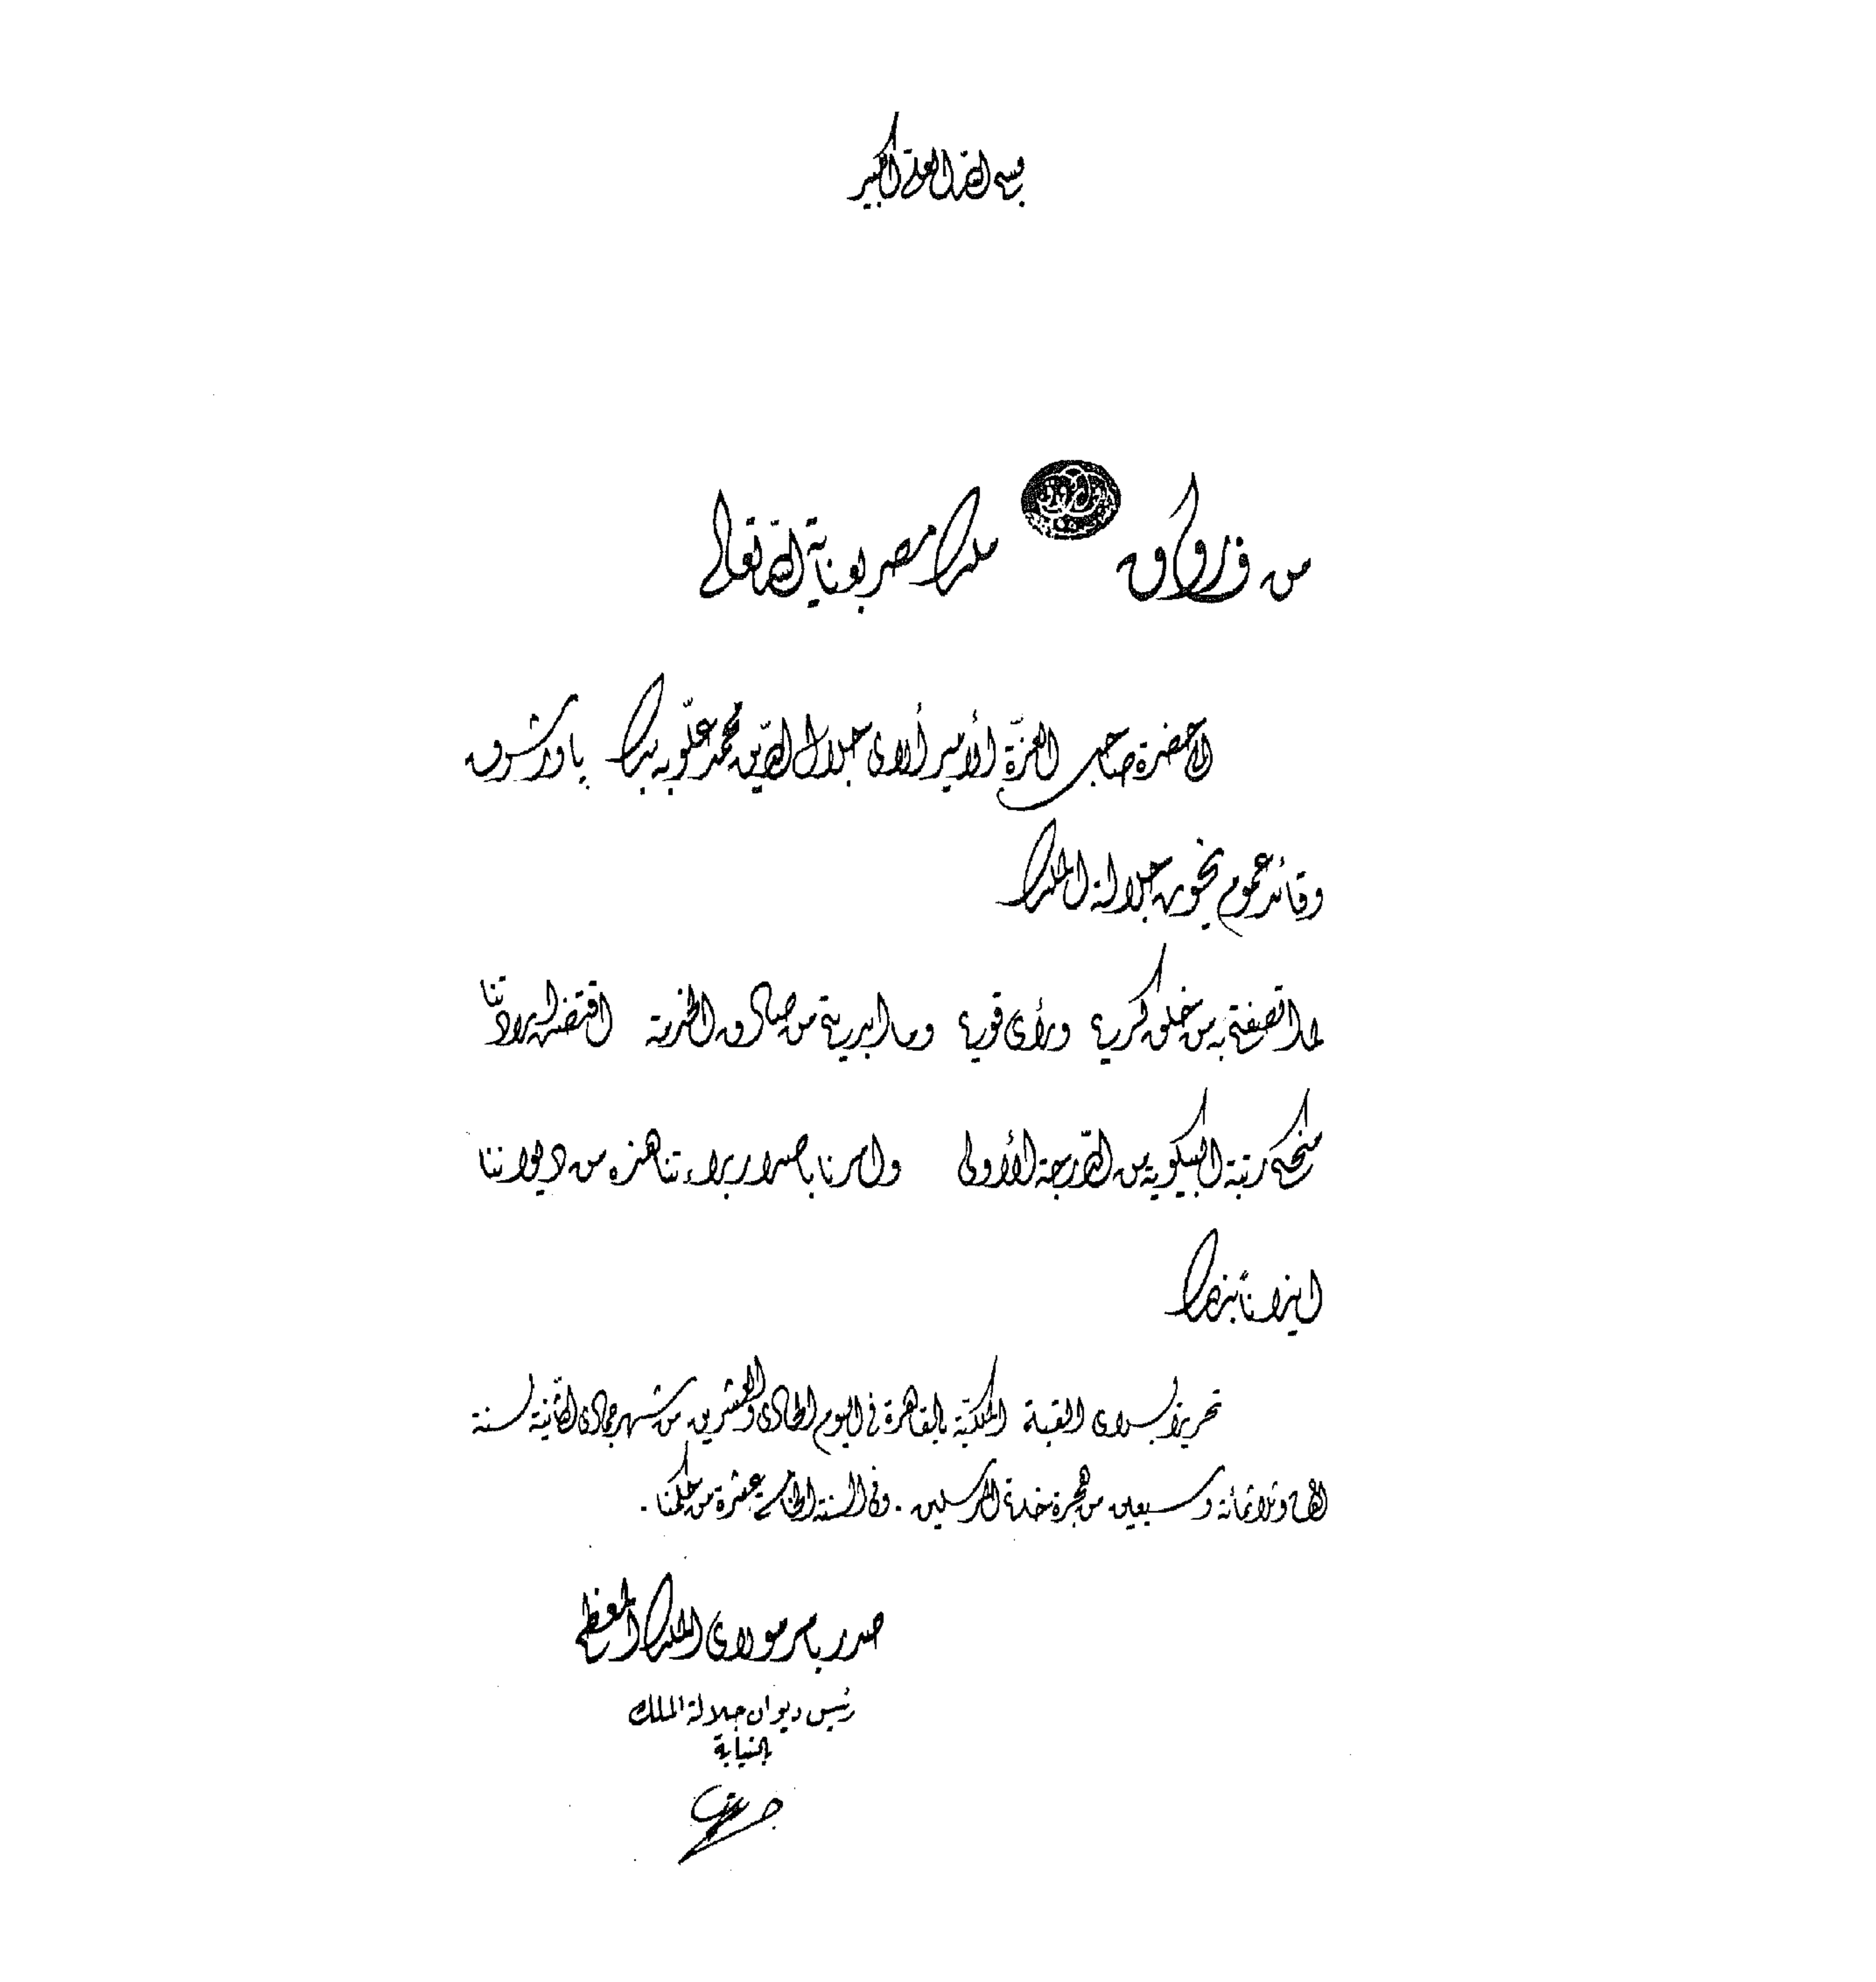 بسم الله العلى الكبير
من فاروق ملك مصر بعناية الله تعالى
إلى حضرة صاحب العزة الأمير ألاى جلال الدين محمد علوبه بك ياور شرف
وقائد عموم يخوت جلالة الملك
لما اتصفتم به من خلق كريم ورأى قويم وما ابديتم من صادق الخدمة اقتضت إرادتنا
منحكم رتبة البيكوية من الدرجة الأولى وامرنا بإصدار براءتنا هذه من ديواننا
ايذانا بذلك
تحريرا بسراى القبة الملكية بالقاهرة فى اليوم الحادى والعشرين من شهر جمادى الثانية لسنة
الف وثلاثمائة وسبعين من هجرة خاتم المرسلين . وفى السنة الخامسة عشرة من حكمنا .
صدر بأمر مولاى الملك المعظم
رئيس ديوان جلالة الملك
بالنيابة